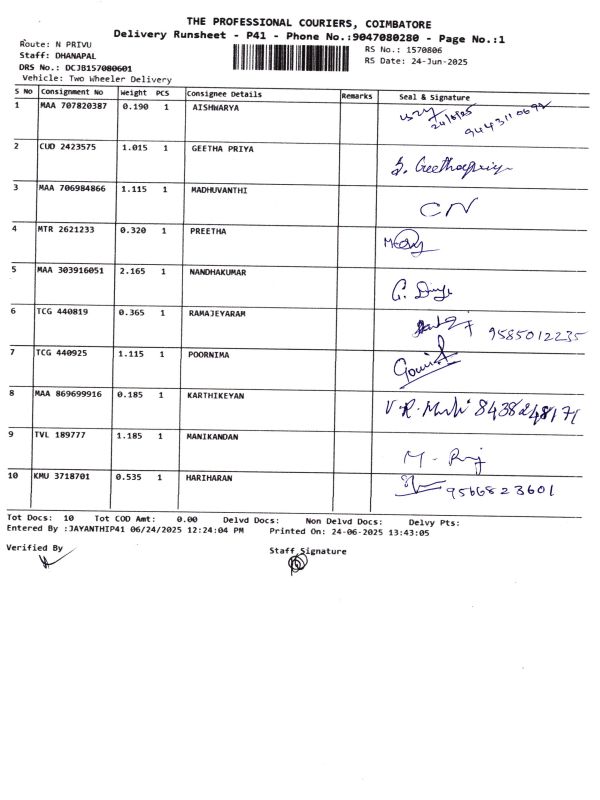 THE PROFESSIONAL COURIERS, COIMBATORE
Delivery Runsheet - P41 - Phone No.:9047080280 - Page No.:1
Route: N PRIVU
RS No.: 1570806
Staff: DHANAPAL
RS Date: 24-Jun-2025
DRS No.: DCJB157080601
Vehicle: Two Wheeler Delivery
S No Consignment No Weight PCS Consignee Details Remarks Seal & Signature
1 MAA 707820387 0.190 1 AISHWARYA 24/6/25
2 CUD 2423575 1.015 1 GEETHA PRIYA S. Geethapriya
3 MAA 706984866 1.115 1 MADHUVANTHI CN
4 MTR 2621233 0.320 1 PREETHA
5 MAA 303916051 2.165 1 NANDHAKUMAR
6 TCG 440819 0.365 1 RAMAJEYARAM 9585012235
7 TCG 440925 1.115 1 POORNIMA
8 MAA 869699916 0.185 1 KARTHIKEYAN V.R.
9 TVL 189777 1.185 1 MANIKANDAN M - Raj
10 KMU 3718701 0.535 1 HARIHARAN 9566823601
Tot Docs: 10 Tot COD Amt: 0.00 Delvd Docs: Non Delvd Docs: Delvy Pts:
Entered By :JAYANTHIP41 06/24/2025 12:24:04 PM Printed On: 24-06-2025 13:43:05
Verified By Staff Signature